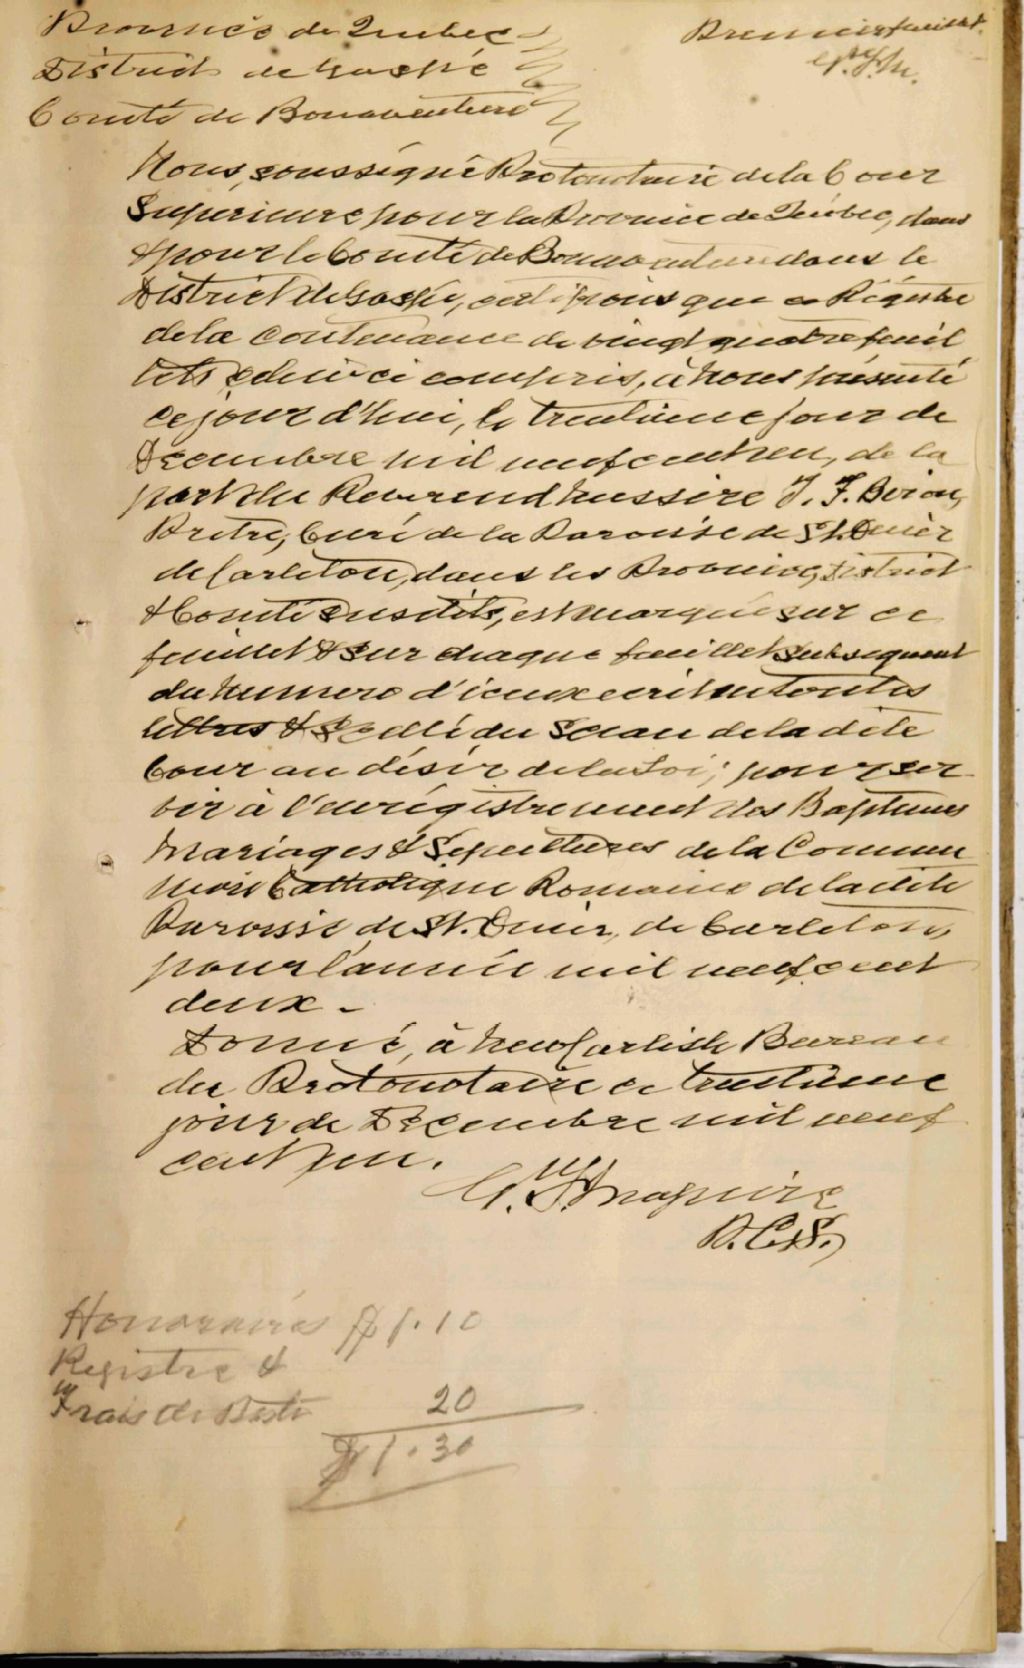 Province de Quebec
Premier feuillet.
District de Gaspé
G.F.M.
Comté de Bonaventure
Nous, soussigné Protonotaire de la Cour
Superieure pour la Province de Quebec, dans
& pour le Comté de Bonaventure dans le
District de Gaspé, certifions que ce Régistre
de la contenance de vingt quatre feuil
lets celui ci compris, à nous présenté
ce jour d'hui, le trentième jour de
Decembre mil neuf cent un, de la
part du Reverend Messire J. F.
Pretre, Curé de la Paroisse de St. Omer
de Carleton, dans les Province, District
& Comté susdits, est marqué sur ce
feuillet & sur chaque feuillet subsequent
du numero d'iceux ecrit en toutes
lettres & Scellé du Sceau de la dite
Cour au désir de la Loi; pour ser
vir à l'enrégistrement des Baptemes
Mariages & Sepultures de la Commu
nion Catholique Romaine de la dite
Paroisse de St. Omer, de Carleton,
pour l'année mil neuf cent
deux -
Donné, à New Carlisle Bureau
du Protonotaire ce trentième
jour de Decembre mil neuf
cent un.
G. F. Maguire
P.C.S.
Honoraires $1.10
Registre &
Frais de Poste 20
$1.30